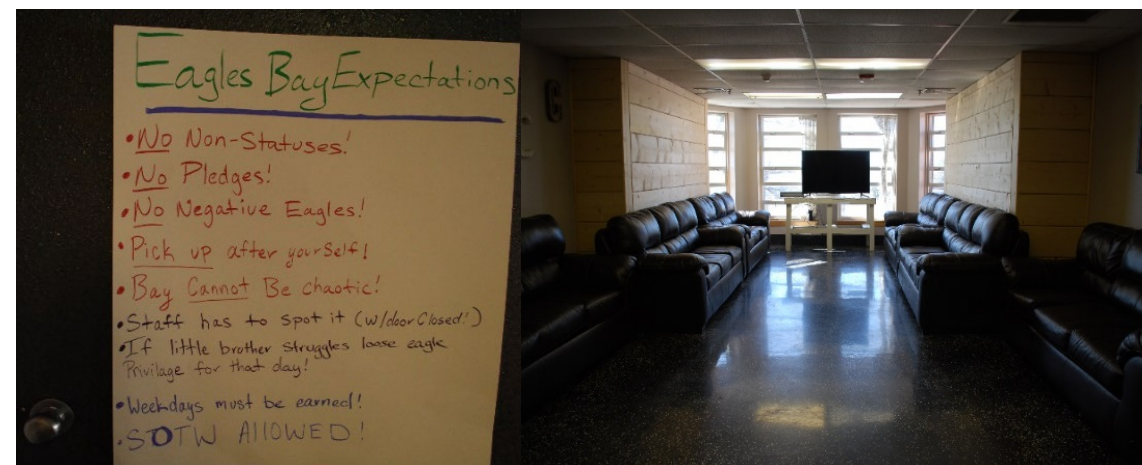 Eagles Bay Expectations
•No Non-Statuses!
•No Pledges!
•No Negative Eagles!
•Pick up after yourself!
•Bay Cannot Be chaotic!
•Staff has to spot it (w/door Closed!)
•If little brother struggles loose eagle
Privilage for that day!
•Weekdays must be earned!
•SOTW AllOWED!
C